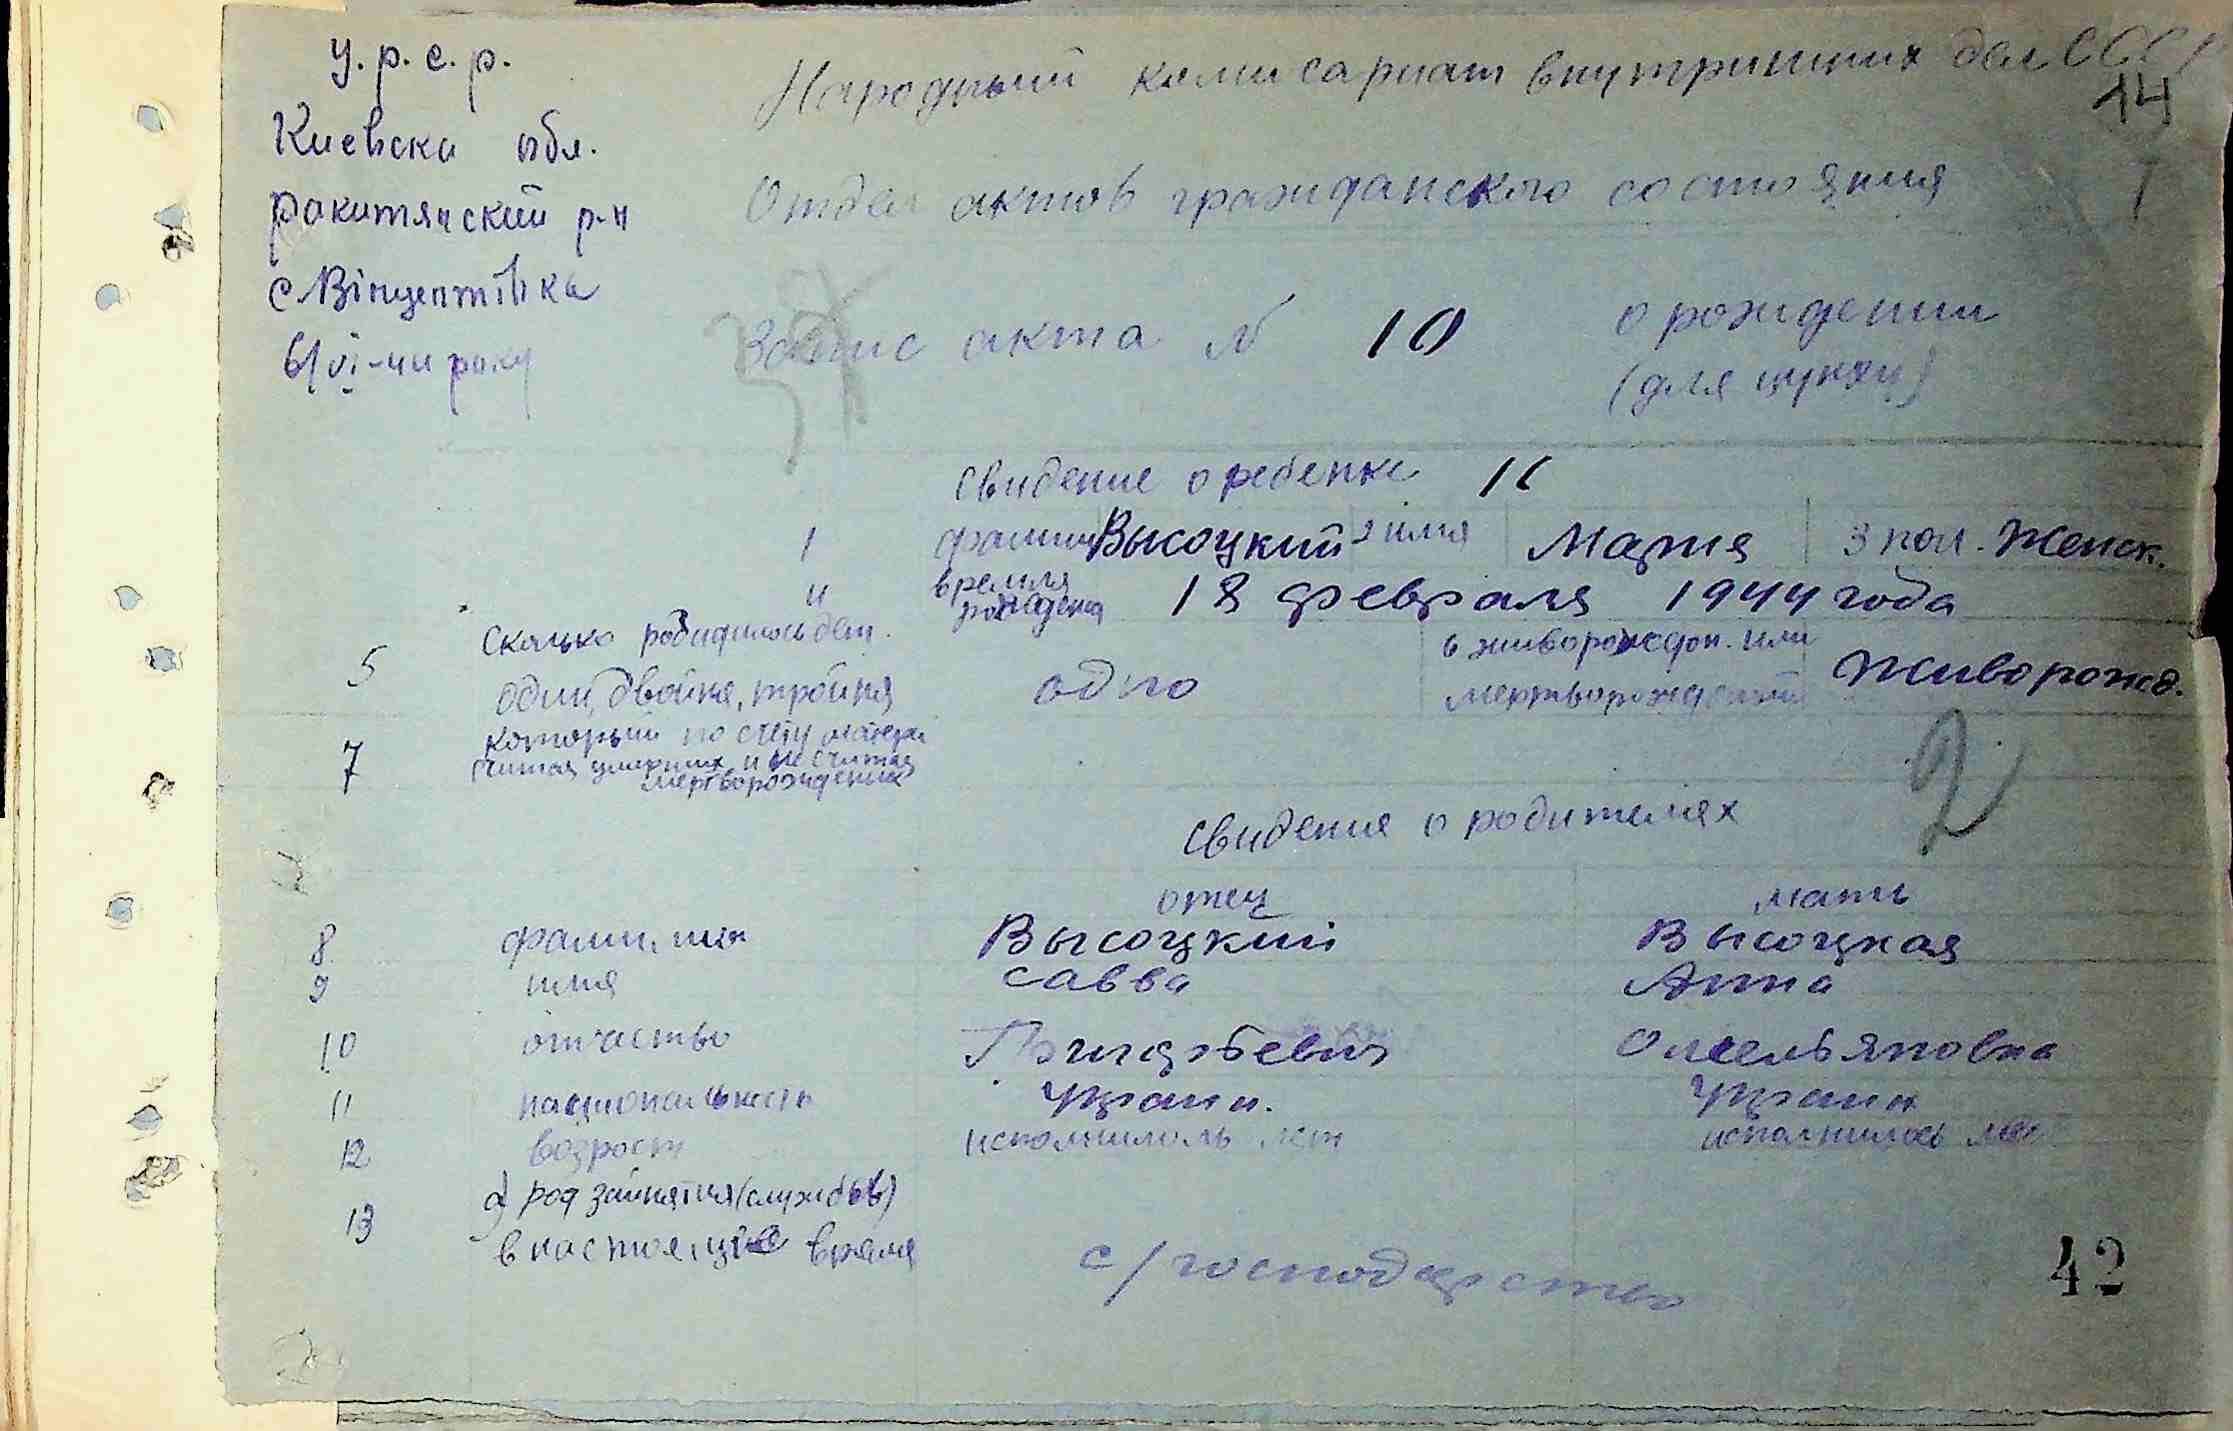 У.р.с.р.
Киевска обл.
ракитянский р-н
с Вінцентівка
Народный комисариат внутриших дел СССР
14
Отдел актов гражданского состояния
Запис акта N 10 о рождении
(для цунху)
Свидение о ребенке 11
1 фамил Высоцкий 2 имя Мария 3 пол. Женск.
4 времля рождения 18 февраля 1944 года
5 Сколько родидилось дет.
один, двойня, тройня одно
6 живорожден. или
мертворожденый Живорожд.
7 который по счету матери
считая умерших и не считая
мертворожденых
2
Свидения о родителях
отец мать
8 фамилия Высоцкий Высоцкая
9 имя Савва Анна
10 отчаство Омельяновна
11 национальность Украин. Украин
12 возраст исполнилось лет исполнилось лет
13 а) род зайнятия (службы)
в настоящие время с/господарство
42